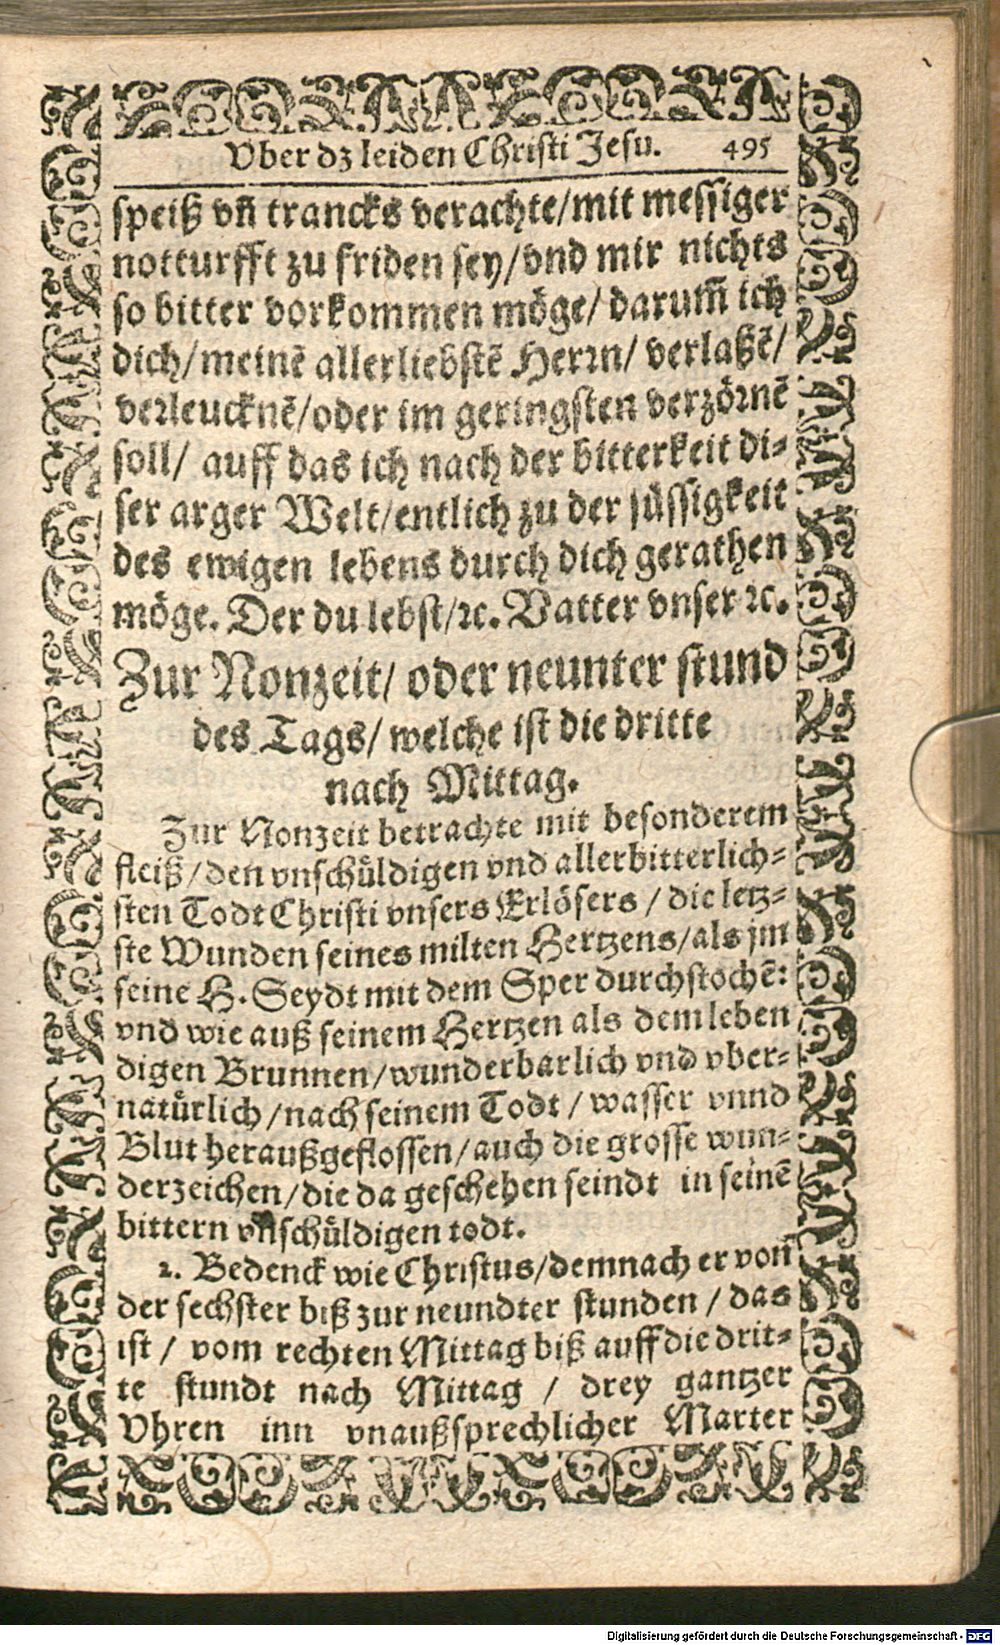 Vber dz leiden Christi Jesu. 495
speiß vñ trancks verachte/mit messiger
notturfft zu friden sey/vnd mir nichts
so bitter vorkommen möge/ darum̃ ich
dich/meinẽ allerliebstẽ Herrn/ verlaßẽ/
verleucknẽ/oder im geringsten verzörnẽ
soll/ auff das ich nach der bitterkeit di-
ser arger Welt/entlich zu der süssigkeit
des ewigen lebens durch dich gerathen
möge. Der du lebst/ꝛc. Vatter vnser ꝛc.
Zur Nonzeit/ oder neunter stund
des Tags/ welche ist die dritte
nach Mittag.
Zur Nonzeit betrachte mit besonderem
fleiß/den vnschüldigen vnd allerbitterlich-
sten Todt Christi vnsers Erlösers / die letz-
ste Wunden seines milten Hertzens/als jm
seine H. Seydt mit dem Sper durchstochẽ:
vnd wie auß seinem Hertzen als dem leben
digen Brunnen/wunderbarlich vnd vber-
natürlich/nach seinem Todt / wasser vnnd
Blut heraußgeflossen/auch die grosse wun-
derzeichen/die da geschehen seindt in seinẽ
bittern vnschüldigen todt.
2. Bedenck wie Christus/demnach er von
der sechster biß zur neundter stunden / das
ist / vom rechten Mittag biß auff die drit-
te stundt nach Mittag / drey gantzer
Vhren inn vnaußsprechlicher Marter
Digitalisierung gefördert durch die Deutsche Forschungsgemeinschaft - DFG